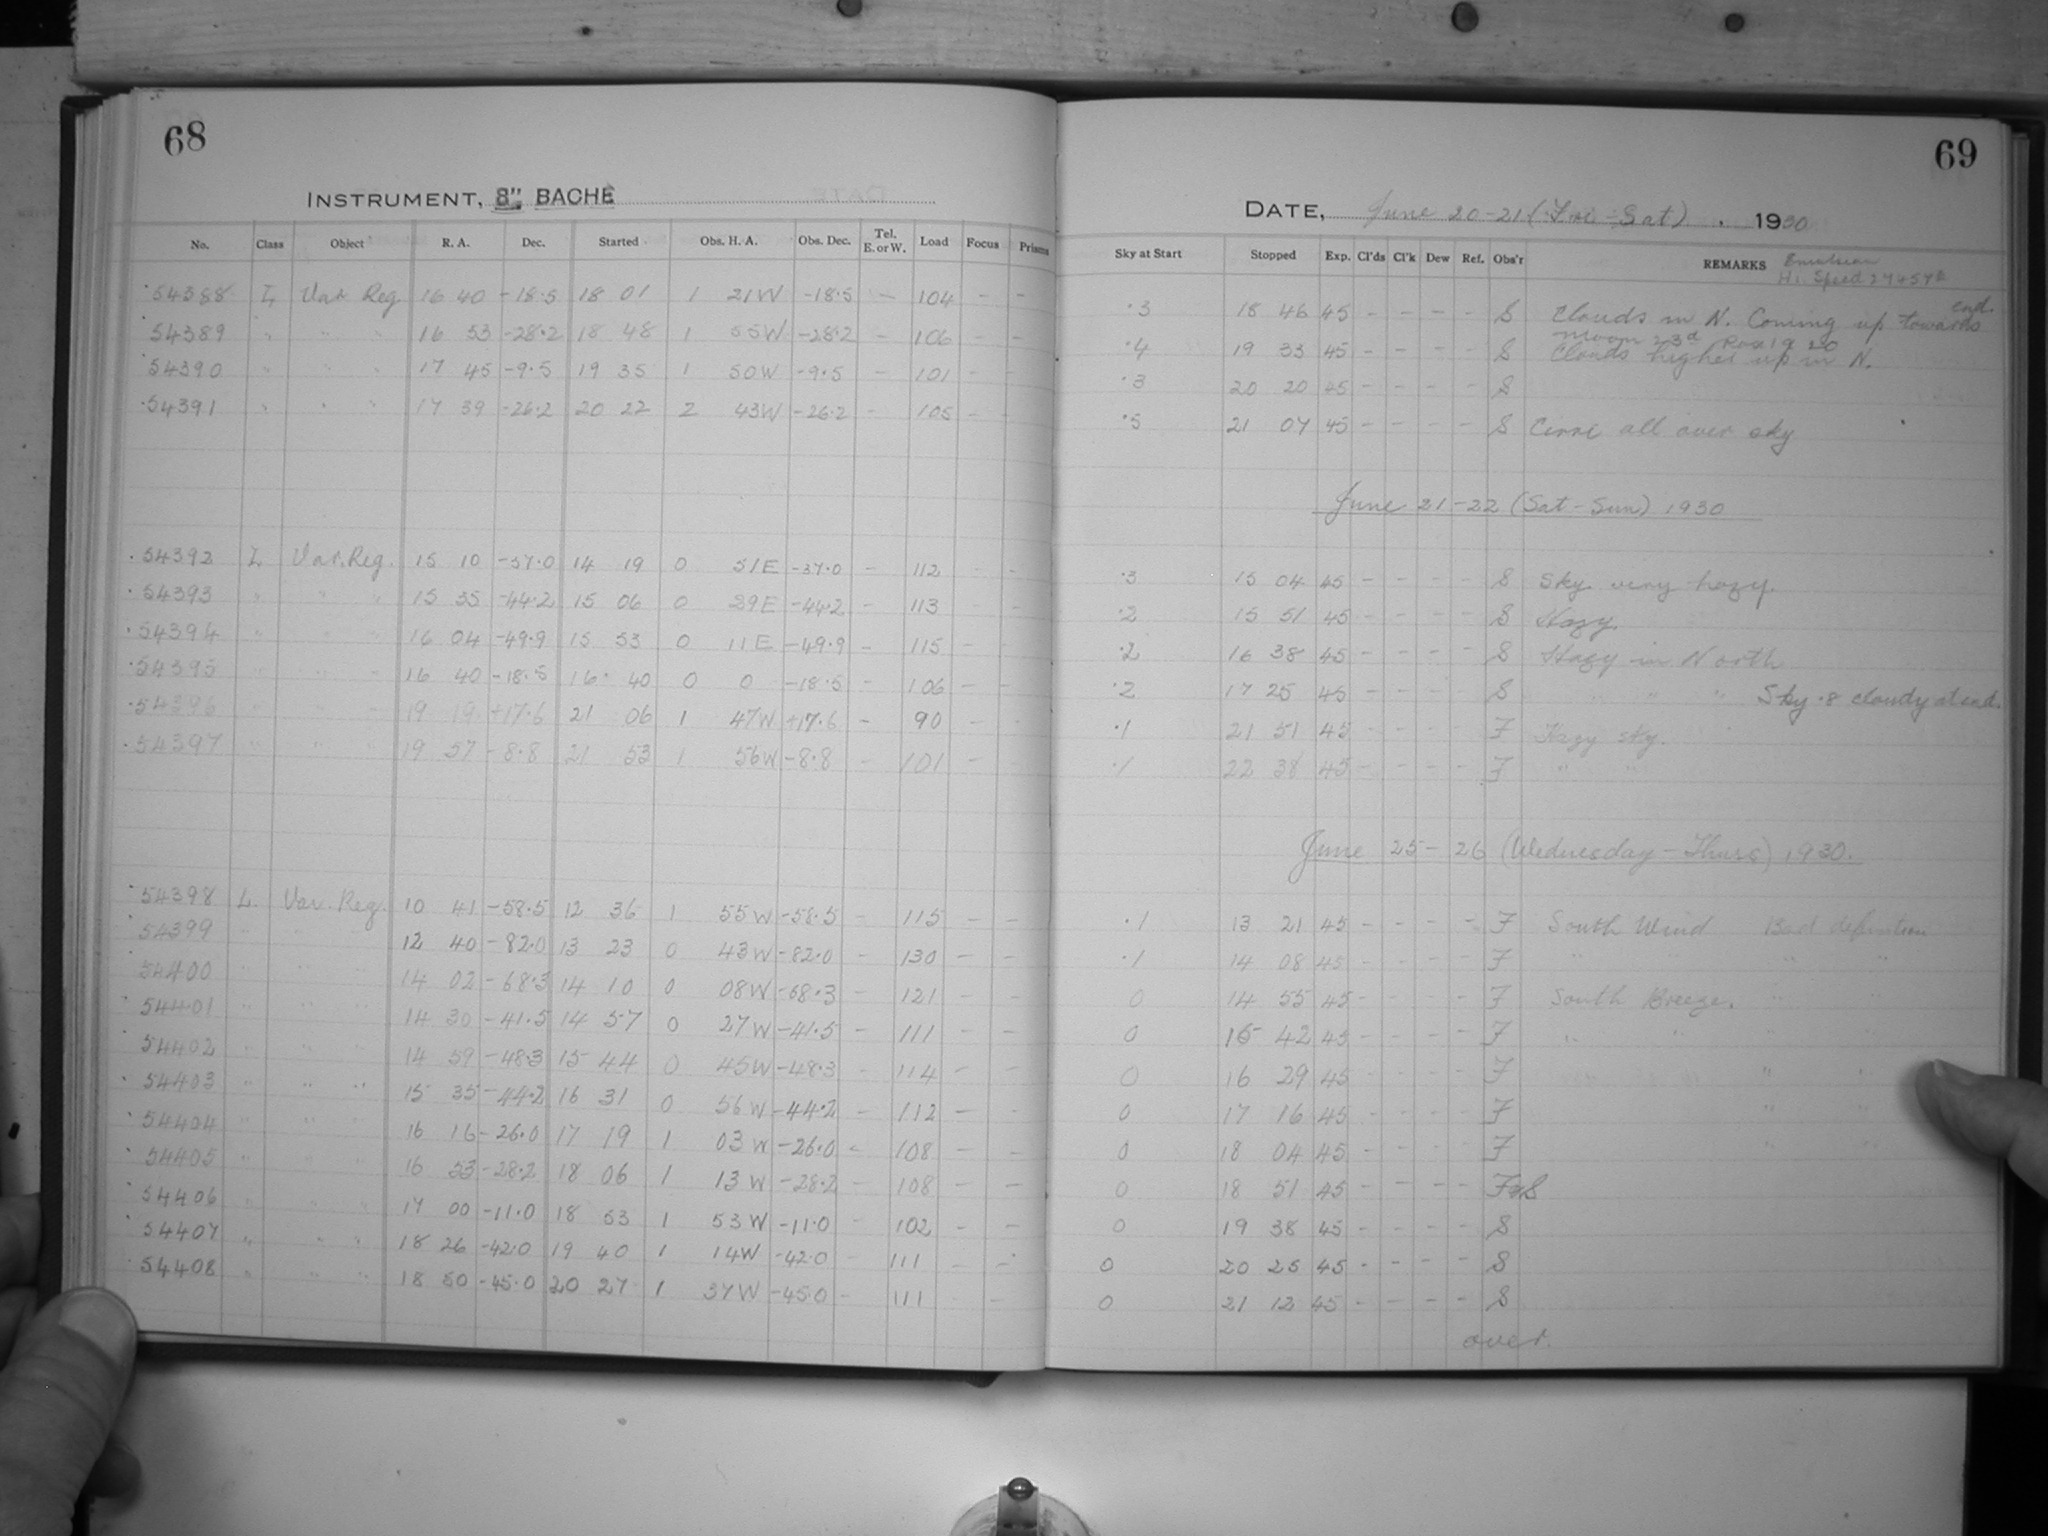 68
INSTRUMENT, 8" BACHE
No. Class Object R. A. Dec. Started Obs. H. A. Obs. Dec. Tel. E. or W. Load Focus Prisms
54388 L Var Reg 16 40 -18.5 18 01 1 21W -18.5 - 104 - -
54389 " " " 16 53 -28.2 18 48 1 55W -28.2 - 106 - -
54390 " " " 17 45 -9.5 19 35 1 50W -9.5 - 101 - -
54391 " " " 17 39 -26.2 20 22 2 43W -26.2 - 105 - -
54392 L Var. Reg. 15 10 -37.0 14 19 0 51E -37.0 - 112 - -
54393 " " " 15 35 -44.2 15 06 0 29E -44.2 - 113 - -
54394 " " " 16 04 -49.9 15 53 0 11E -49.9 - 115 - -
54395 " " " 16 40 -18.5 16 40 0 0 -18.5 - 106 - -
54396 " " " 19 19 +17.6 21 06 1 47W +17.6 - 90 - -
54397 " " " 19 57 -8.8 21 53 1 56W -8.8 - 101 -
54398 L Var. Reg. 10 41 -58.5 12 36 1 55W -58.5 - 115 - -
54399 " " " 12 40 -82.0 13 23 0 43W -82.0 - 130 - -
54400 " " " 14 02 -68.3 14 10 0 08W -68.3 - 121 - -
54401 " " " 14 30 -41.5 14 57 0 27W -41.5 - 111 - -
54402 " " " 14 59 -48.3 15 44 0 45W -48.3 - 114 - -
54403 " " " 15 35 -44.2 16 31 0 56W -44.2 - 112 - -
54404 " " " 16 16 -26.0 17 19 1 03W -26.0 - 108 - -
54405 " " " 16 53 -28.2 18 06 1 13W -28.2 - 108 - -
54406 " " " 17 00 -11.0 18 53 1 53W -11.0 - 102 - -
54407 " " " 18 26 -42.0 19 40 1 14W -42.0 - 111 - -
54408 " " " 18 50 -45.0 20 27 1 37W -45.0 - 111 - -
69
DATE, June 20-21 (Fri-Sat). 1930
Sky at Start Stopped Exp. Cl'ds Cl'k Dew Ref. Obs'r REMARKS Emulsion
Hi Speed
.3 18 46 45 - - - - S Clouds in N. Coming up towards end.
Moon 23d Rose 19 20
.4 19 33 45 - - - - S Clouds higher up in N.
.3 20 20 45 - - - - S
.5 21 07 45 - - - - S Cirri all over sky
June 21-22 (Sat-Sun) 1930
.3 15 04 45 - - - - S Sky very hazy.
.2 15 51 45 - - - - S Hazy.
.2 16 38 45 - - - - S Hazy in North
.2 17 25 45 - - - - S " " " Sky .8 cloudy at end.
.1 21 51 45 - - - - F Hazy sky.
.1 22 38 45 - - - - F " "
June 25-26 (Wednesday-Thurs) 1930.
.1 13 21 45 - - - - F South Wind Bad definition
.1 14 08 45 - - - - F " " " "
0 14 55 45 - - - - F South Breeze. " "
0 15 42 45 - - - - F " " " "
0 16 29 45 - - - - F " "
0 17 16 45 - - - - F " "
0 18 04 45 - - - - F " "
0 18 51 45 - - - - F&S
0 19 38 45 - - - - S
0 20 25 45 - - - - S
0 21 12 45 - - - - S
over.